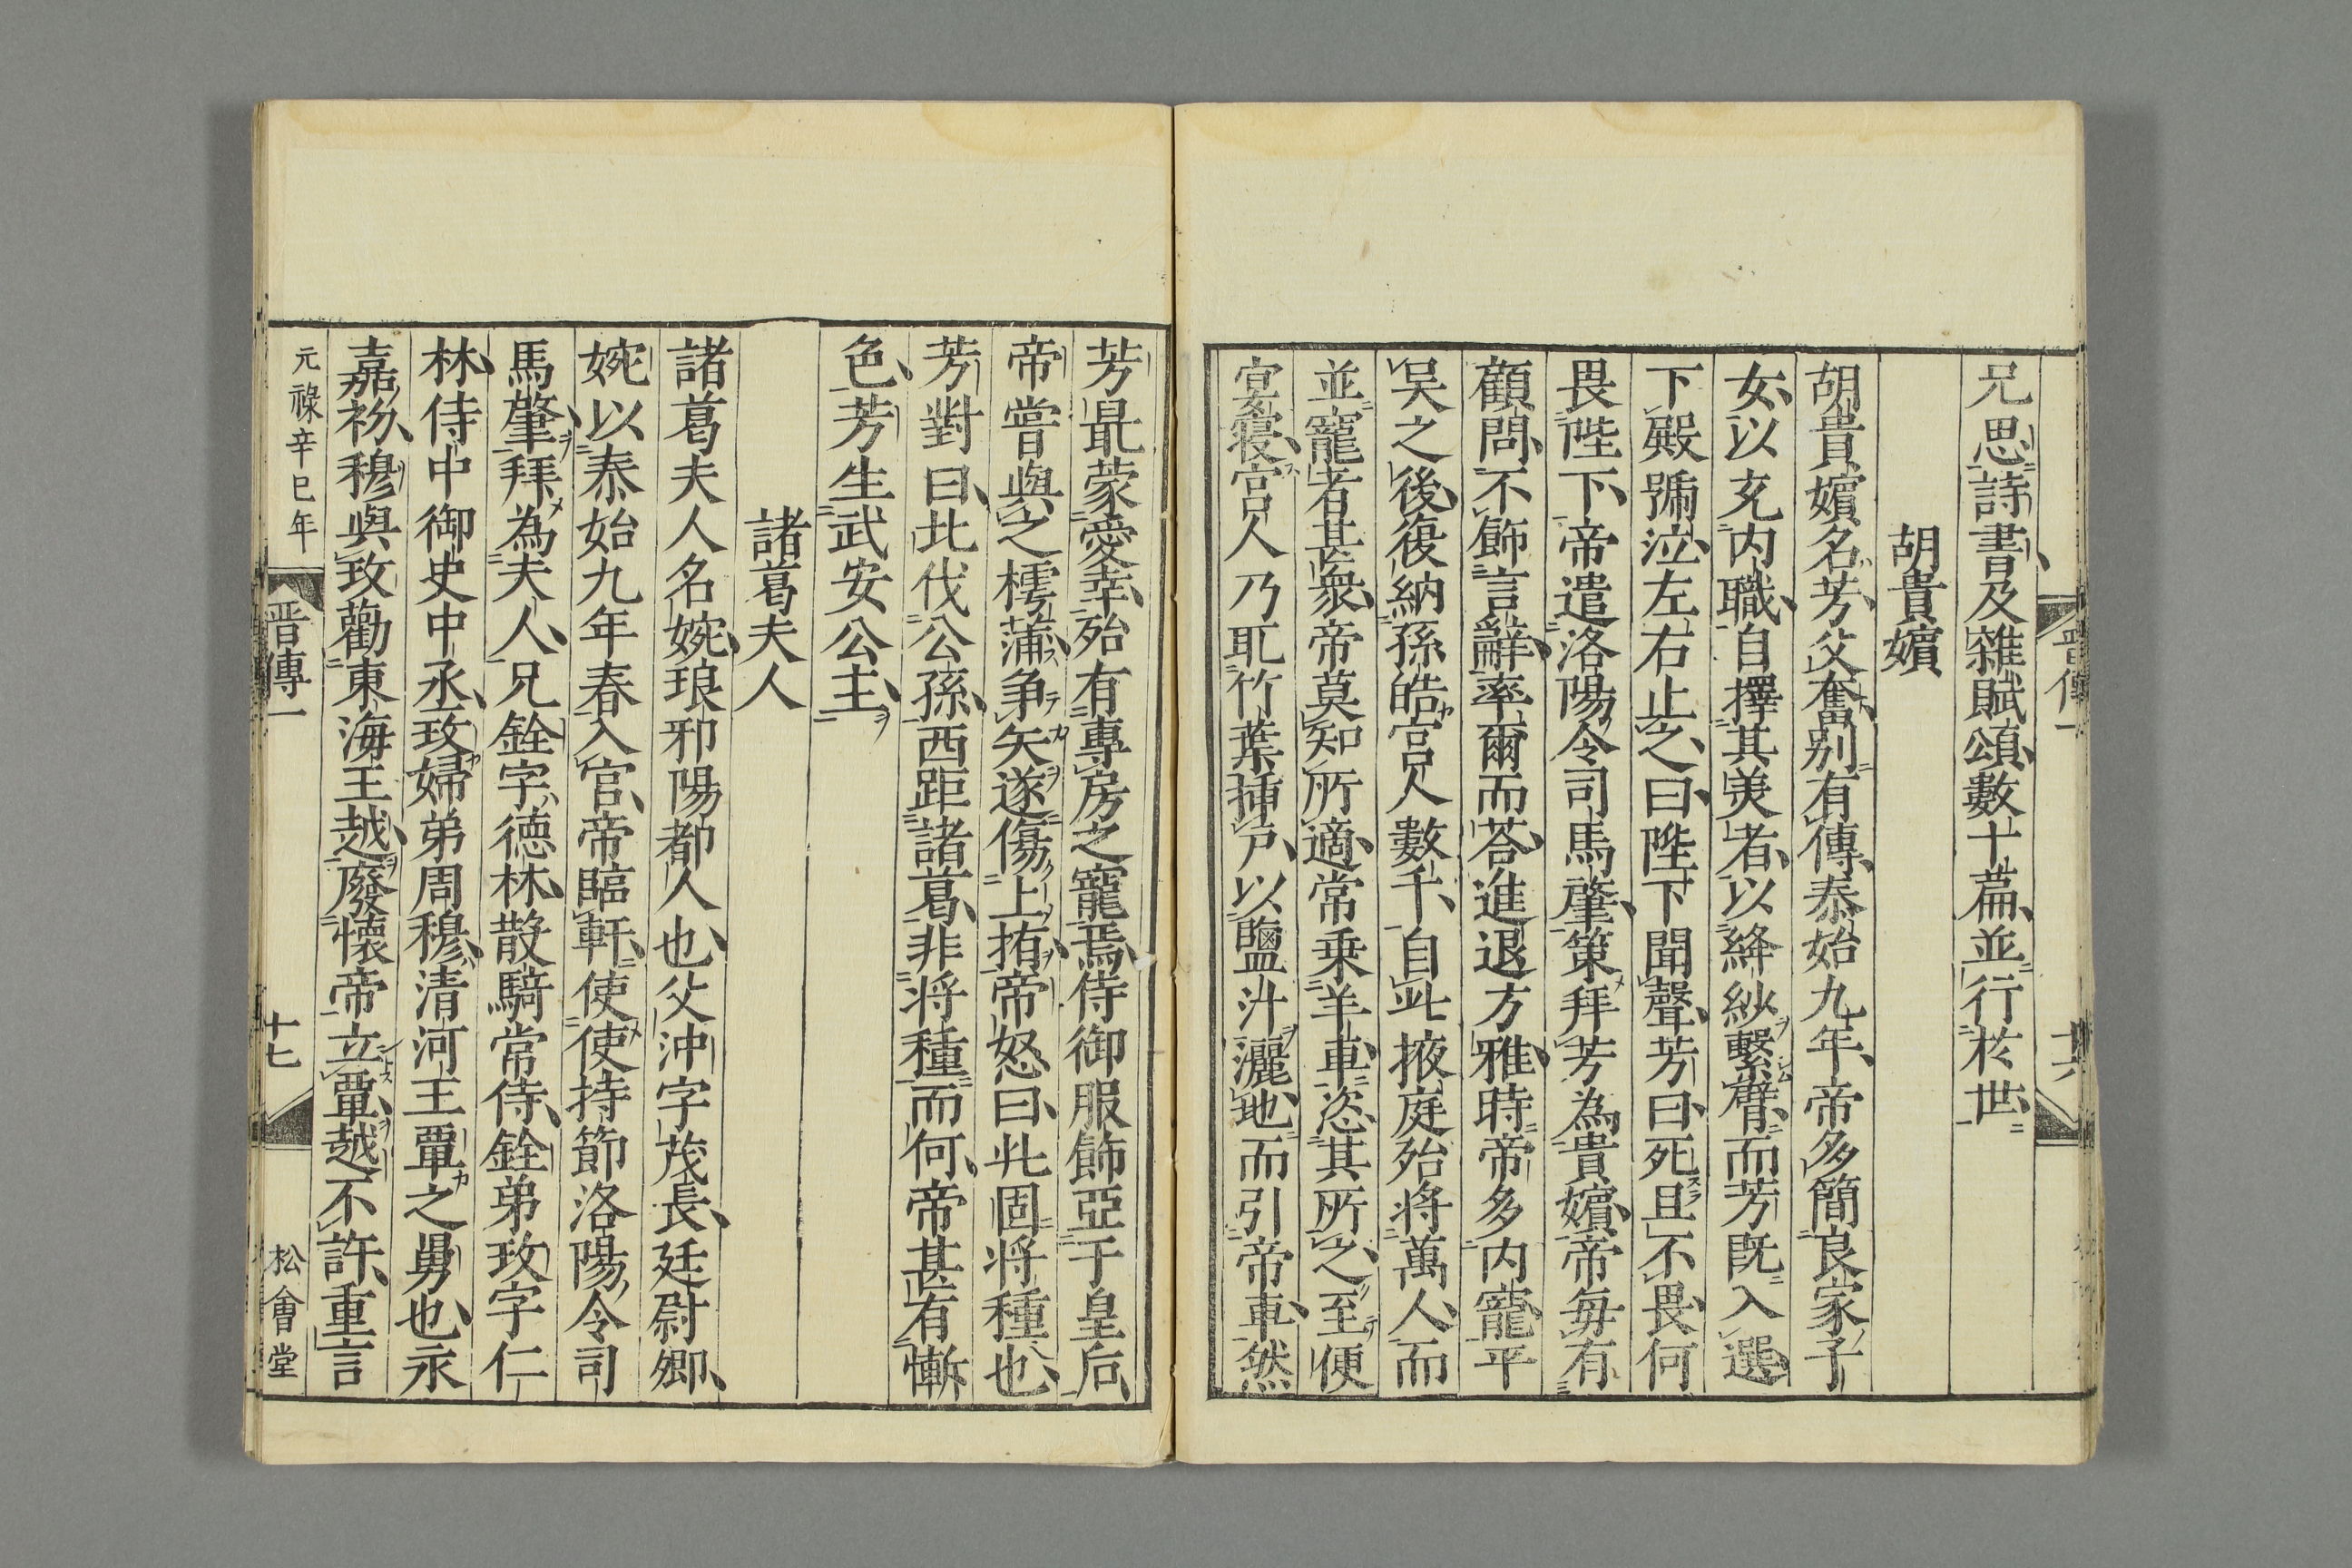 晋傳一
十六
兄思詩書及雜賦頌數十篇並行於世
胡貴嬪
胡貴嬪名芳父奮别有傳泰始九年帝多簡良家子
女以充内職自擇其美者以絳紗繫臂而芳既入選
下殿號泣左右止之曰陛下聞聲芳曰死且不畏何
畏陛下帝遣洛陽令司馬肇策拜芳為貴嬪帝每有
顧問不飾言辭率爾而荅進退方雅時帝多内寵平
吳之後復納孫皓宫人數千自此掖庭殆将萬人而
並寵者甚衆帝莫知所適常乗羊車恣其所之至便
宴寝宫人乃取竹葉揷戸以鹽汁灑地而引帝車然
芳最蒙愛幸殆有專房之寵焉侍御服飾亞于皇后
帝嘗與之樗蒲争矢遂傷上指帝怒曰此固将種也
芳對曰北伐公孫西距諸葛非将種而何帝甚有慚
色芳生武安公主
諸葛夫人
諸葛夫人名婉琅邪陽都人也父沖字茂長廷尉卿
婉以泰始九年春入宫帝臨軒使使持節洛陽令司
馬肇拜為夫人兄銓字德林散騎常侍銓弟玫字仁
林侍中御史中丞玫婦弟周穆清河王覃之舅也永
嘉初穆與玫勸東海王越廢懷帝立覃越不許重言
元祿辛巳年
晋傳一
十七
松會堂